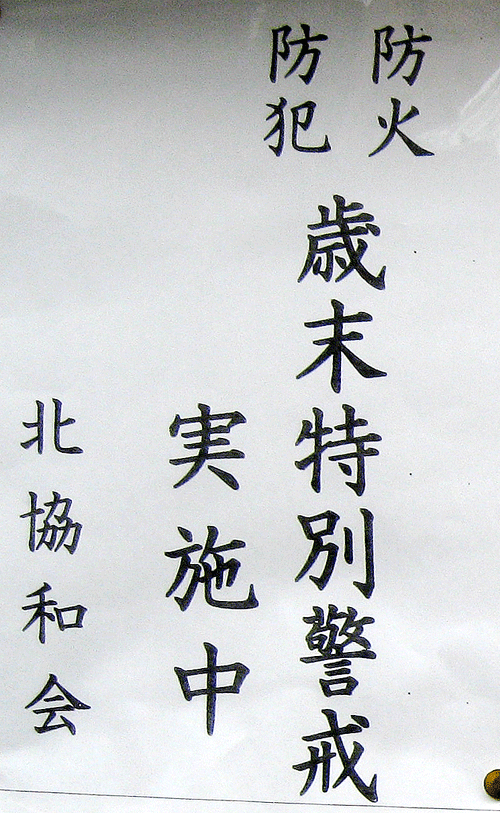 防火
防犯
歳末特別警戒
実施中
北協和会